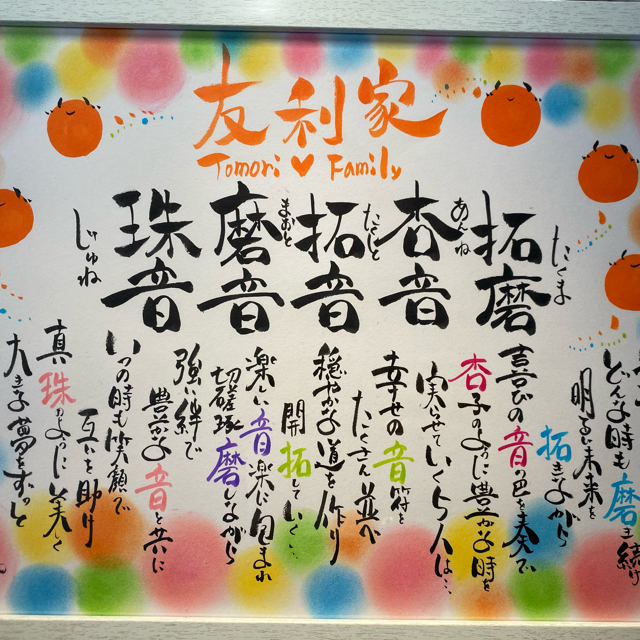 友利家
Tomori ♥ Family
拓磨
たくま
杏音
あんね
拓音
たくと
磨音
まおと
珠音
じゅね
どんな時も磨き続け
明るい未来を
拓きながら
喜びの音色を奏で
杏子のように豊かな時を
実らせていく5人は…
幸せの音符を
たくさん並べ
穏やかな道を作り
開拓していく…
楽しい音楽に包まれ
切磋琢磨しながら
強い絆で
豊かな音と共に
いつの時も笑顔で
互いを助け
真珠のように美しく
大きな夢をずっと